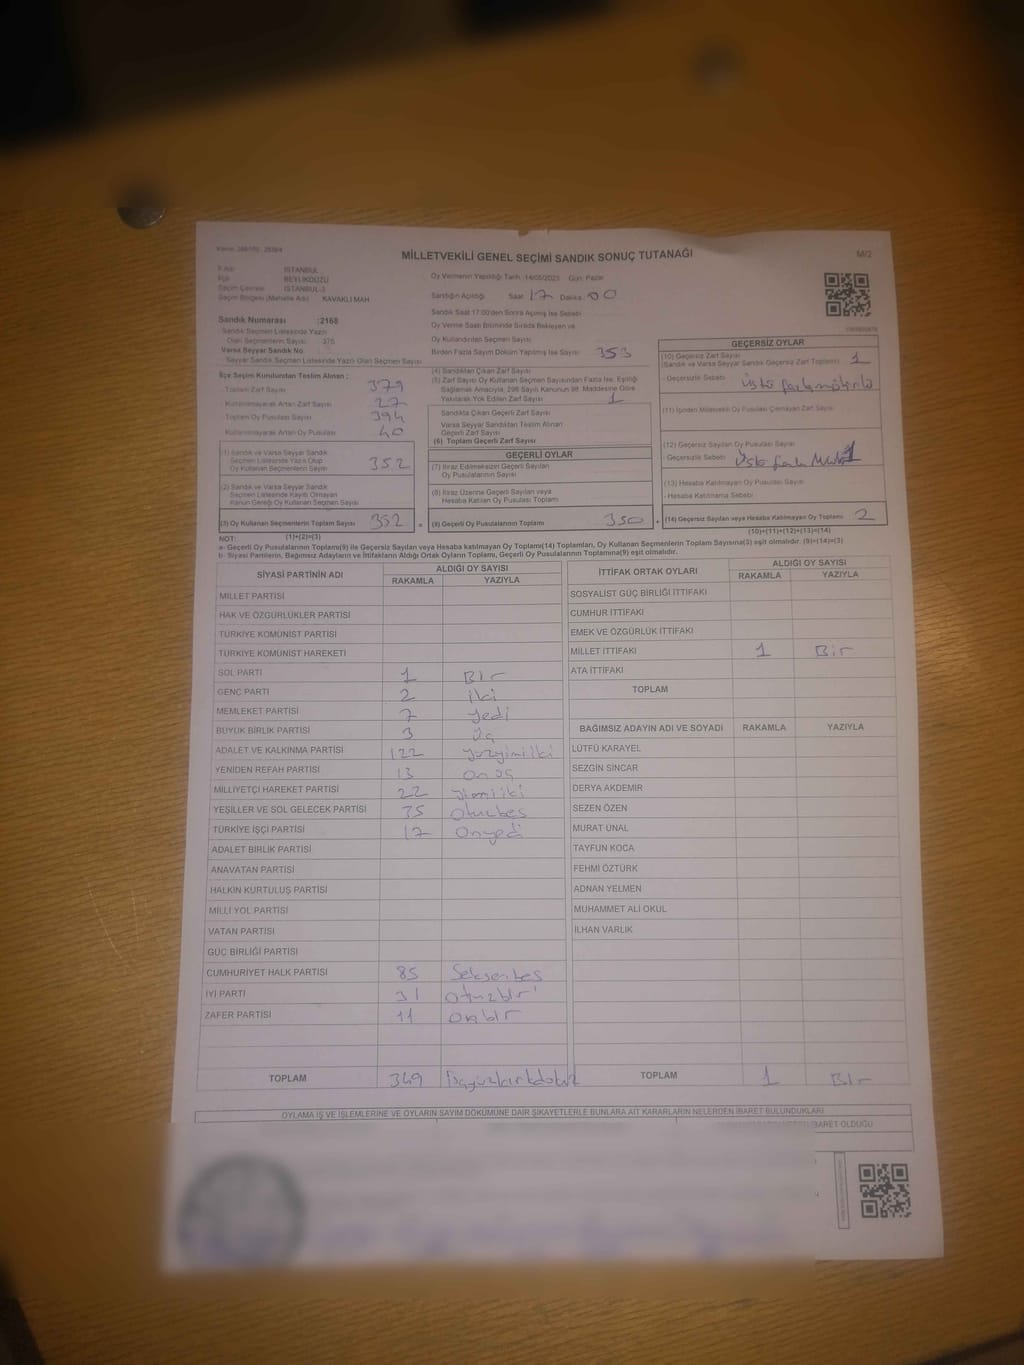 MİLLETVEKİLİ GENEL SEÇİMİ SANDIK SONUÇ TUTANAĞI
M/2
İSTANBUL
BEYLİKDÜZÜ
Seçim Çevresi İSTANBUL-3
Seçim Bölgesi (Mahalle Adı) KAVAKLI MAH
Sandık Numarası :2168
Sandık Seçmen Listesinde Yazılı
Olan Seçmenlerin Sayısı : 375
Varsa Seyyar Sandık No
Seyyar Sandık Seçmen Listesinde Yazılı Olan Seçmen Sayısı
Oy Vermenin Yapıldığı Tarih :14/05/2023 Gün: Pazar
Sandığın Açıldığı Saat 17 Dakika 00
Sandık Saat 17:00'den Sonra Açılmış İse Sebebi
Oy Verme Saati Bitiminde Sırada Bekleyen ve
Oy Kullandırılan Seçmen Sayısı
Birden Fazla Sayım Döküm Yapılmış İse Sayısı 353
İlçe Seçim Kurulundan Teslim Alınan :
Toplam Zarf Sayısı 379
Kullanılmayarak Artan Zarf Sayısı 27
Toplam Oy Pusulası Sayısı 394
Kullanılmayarak Artan Oy Pusulası 40
(1) Sandık ve Varsa Seyyar Sandık
Seçmen Listesinde Yazılı Olup
Oy Kullanan Seçmenlerin Sayısı 352
(2) Sandık ve Varsa Seyyar Sandık
Seçmen Listesinde Kayıtlı Olmayan
Kanun Gereği Oy Kullanan Seçmen Sayısı
(3) Oy Kullanan Seçmenlerin Toplam Sayısı 352 =
(1)+(2)=(3)
(4) Sandıktan Çıkan Zarf Sayısı
(5) Zarf Sayısı Oy Kullanan Seçmen Sayısından Fazla İse, Eşitliği
Sağlamak Amacıyla, 298 Sayılı Kanunun 98. Maddesine Göre
Yakılarak Yok Edilen Zarf Sayısı 1
Sandıkta Çıkan Geçerli Zarf Sayısı
Varsa Seyyar Sandıktan Teslim Alınan
Geçerli Zarf Sayısı
(6) Toplam Geçerli Zarf Sayısı
GEÇERLİ OYLAR
(7) İtiraz Edilmeksizin Geçerli Sayılan
Oy Pusulalarının Sayısı
(8) İtiraz Üzerine Geçerli Sayılan veya
Hesaba Katılan Oy Pusulası Toplamı
(9) Geçerli Oy Pusulalarının Toplamı 350 +
GEÇERSİZ OYLAR
(10) Geçersiz Zarf Sayısı
(Sandık ve Varsa Seyyar Sandık Geçersiz Zarf Toplamı) 1
- Geçersizlik Sebebi
(11) İçinden Milletvekili Oy Pusulası Çıkmayan Zarf Sayısı
(12) Geçersiz Sayılan Oy Pusulası Sayısı 1
- Geçersizlik Sebebi
(13) Hesaba Katılmayan Oy Pusulası Sayısı
- Hesaba Katılmama Sebebi
(14) Geçersiz Sayılan veya Hesaba Katılmayan Oy Toplamı 2
(10)+(11)+(12)+(13)=(14)
NOT:
a- Geçerli Oy Pusulalarının Toplamı(9) ile Geçersiz Sayılan veya Hesaba katılmayan Oy Toplamı(14) Toplamları, Oy Kullanan Seçmenlerin Toplam Sayısına(3) eşit olmalıdır. (9)+(14)=(3)
b- Siyasi Partilerin, Bağımsız Adayların ve İttifakların Aldığı Ortak Oyların Toplamı, Geçerli Oy Pusulalarının Toplamına(9) eşit olmalıdır.
SİYASİ PARTİNİN ADI ALDIĞI OY SAYISI
RAKAMLA YAZIYLA
MİLLET PARTİSİ
HAK VE ÖZGÜRLÜKLER PARTİSİ
TÜRKİYE KOMÜNİST PARTİSİ
TÜRKİYE KOMÜNİST HAREKETİ
SOL PARTİ 1 Bir
GENÇ PARTİ 2 iki
MEMLEKET PARTİSİ 7 yedi
BÜYÜK BİRLİK PARTİSİ 3 üç
ADALET VE KALKINMA PARTİSİ 122 yüzyirmiiki
YENİDEN REFAH PARTİSİ 13 onüç
MİLLİYETÇİ HAREKET PARTİSİ 22 yirmiiki
YEŞİLLER VE SOL GELECEK PARTİSİ 35 otuzbeş
TÜRKİYE İŞÇİ PARTİSİ 17 Onyedi
ADALET BİRLİK PARTİSİ
ANAVATAN PARTİSİ
HALKIN KURTULUŞ PARTİSİ
MİLLİ YOL PARTİSİ
VATAN PARTİSİ
GÜÇ BİRLİĞİ PARTİSİ
CUMHURİYET HALK PARTİSİ 85 Seksenbeş
İYİ PARTİ 31 otuzbir
ZAFER PARTİSİ 11 onbir
TOPLAM 349
İTTİFAK ORTAK OYLARI ALDIĞI OY SAYISI
RAKAMLA YAZIYLA
SOSYALİST GÜÇ BİRLİĞİ İTTİFAKI
CUMHUR İTTİFAKI
EMEK VE ÖZGÜRLÜK İTTİFAKI
MİLLET İTTİFAKI 1 Bir
ATA İTTİFAKI
TOPLAM
BAĞIMSIZ ADAYIN ADI VE SOYADI RAKAMLA YAZIYLA
LÜTFÜ KARAYEL
SEZGİN SİNCAR
DERYA AKDEMİR
SEZEN ÖZEN
MURAT ÜNAL
TAYFUN KOCA
FEHMİ ÖZTÜRK
ADNAN YELMEN
MUHAMMET ALİ OKUL
İLHAN VARLIK
TOPLAM 1 Bir
OYLAMA İŞ VE İŞLEMLERİNE VE OYLARIN SAYIM DÖKÜMÜNE DAİR ŞİKAYETLERLE BUNLARA AİT KARARLARIN NELERDEN İBARET BULUNDUKLARI
İBARET OLDUĞU